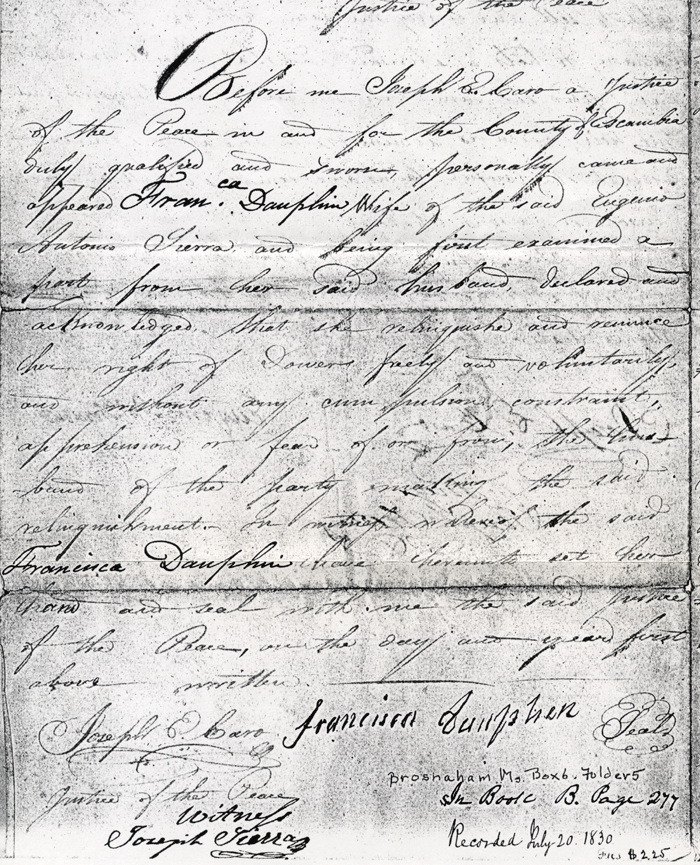 Justice of the Peace
Before me Joseph E. Caro a Justice
of the Peace in and for the County of Escambia
duly qualified and sworn, personally came and
appeared Fran.ca Dauphin Wife of the said Eugenio
Antonio Sierra and being first examined a
part from her said husband, declared and
acknowledged, that she relinquishe and renounce
her right of Dower freely and voluntarily
and without any compulsion constraint,
apprehension or fear of or from, the hus-
band of the party making the said
relinquishment. In the said
Francisca Dauphin have hereunto set her
hand and seal with me the said Justice
of the Peace, on the day and year first
above written.
Joseph E Caro francisca Dauphen Seal
Brosnaham Ms. Box6. Folder5
Justice of the Peace
In Book B. Page 277
Witness
Joseph Sierra
Recorded July 20. 1830
$2.25